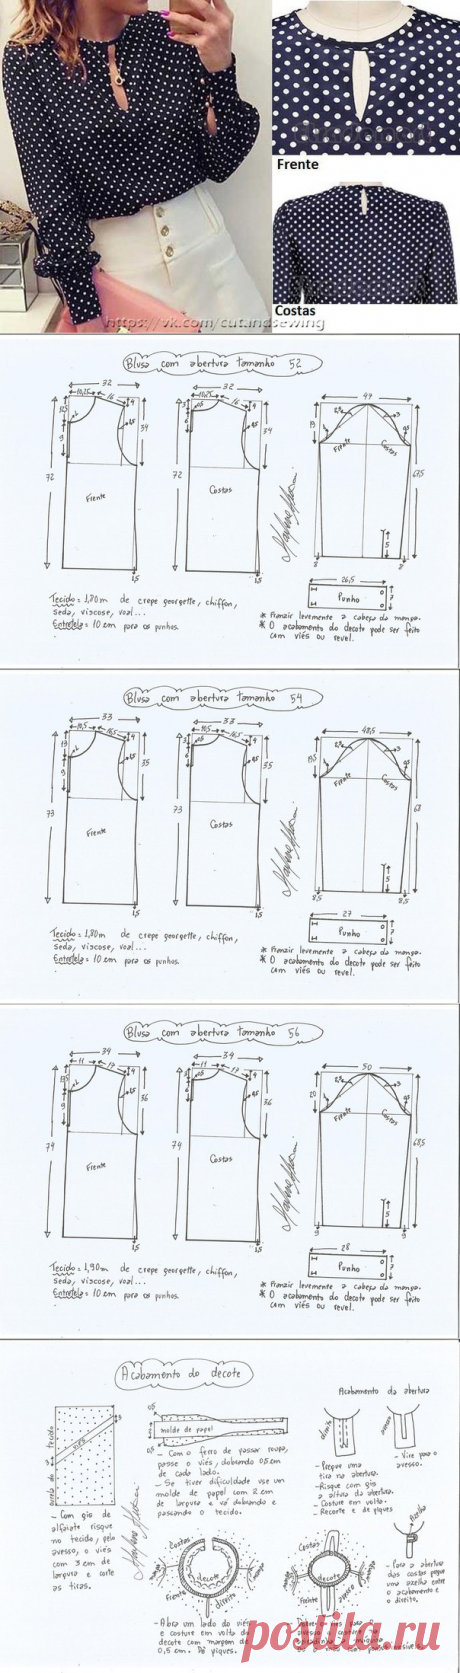 Frente
Costas
https://vk.com/cutandsewing
Blusa com abertura tamanho 52
32
10,25
16
4
34
9
72
Frente
1,5
32
10,25
16
4
34
72
Costas
1,5
44
19
Frente
Costas
67,5
5
8
8
26,5
Punho
7
Tecido = 1,80m de crepe georgette, chiffon,
seda, viscose, voal...
Entretela = 10 cm para os punhos.
* Franzir levemente a cabeça da manga.
* O acabamento do decote pode ser feito
com viés ou revel.
Blusa com abertura tamanho 54
33
10,5
16,5
4
35
13
9
73
Frente
1,5
33
10,5
16,5
4
35
73
Costas
1,5
48,5
19,5
Frente
Costas
68
5
8,5
8,5
27
Punho
7
Tecido = 1,80m de crepe georgette, chiffon,
seda, viscose, voal...
Entretela = 10 cm para os punhos.
* Franzir levemente a cabeça da manga.
* O acabamento do decote pode ser feito
com viés ou revel.
Blusa com abertura tamanho 56
34
11
17
4
36
13,5
9
74
Frente
1,5
34
11
17
4
36
74
Costas
1,5
50
20
Frente
Costas
68,5
5
9
9
28
Punho
7
Tecido = 1,90m de crepe georgette, chiffon,
seda, viscose, voal...
Entretela = 10 cm para os punhos.
* Franzir levemente a cabeça da manga.
* O acabamento do decote pode ser feito
com viés ou revel.
Acabamento do decote
ourela do tecido
viés
3
3
- Com giz de
alfaiate risque
no tecido, pelo
avesso, o viés
com 3 cm de
largura e corte
as tiras.
0,5
molde de papel
0,5
- Com o ferro de passar roupa,
passe o viés, dobrando 0,5 cm
de cada lado.
- Se tiver dificuldade use um
molde de papel com 2 cm
de largura e vá dobrando e
passando o tecido.
Acabamento da abertura
direito
avesso
- Pregue uma
tira na abertura.
- Risque com giz
a altura da abertura.
- Costure em volta.
- Recorte e dê piques
- Vire para o
avesso.
Costas
manga
decote
manga
Frente
direito
- Abra um lado do viés
e costure em volta do
decote com margem de
0,5 cm. Dê piques.
Costas
manga
decote
manga
Frente
avesso
Azelha
- Para a abertura
das costas pregue
uma azelha entre
o acabamento e
o direito.
postila.ru